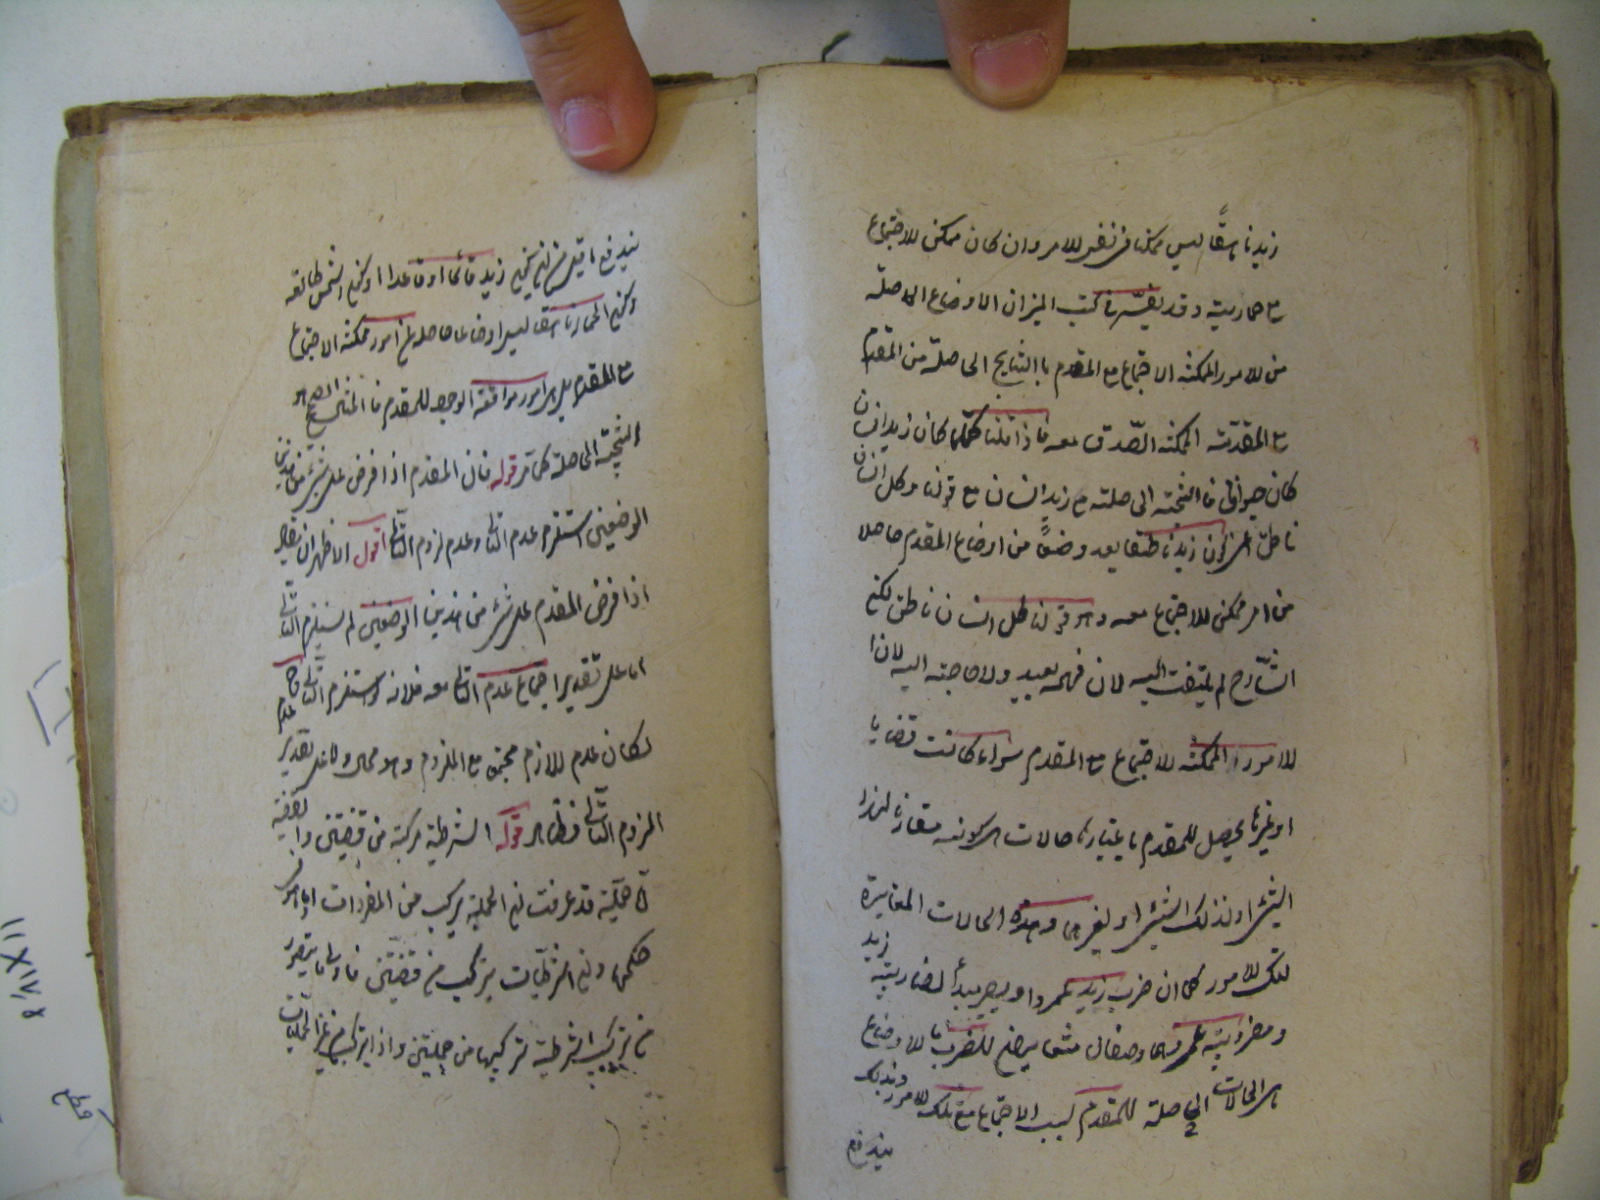 زيد ناهقًا ليس ممكنا في نفس الامر وان كان ممكن الاجتماع
مع حماريته وقد يفسر في كتب الميزان الاوضاع الحاصلة
من الامور الممكنة الاجتماع مع المقدم بالنتايج الحاصلة من المقدم
مع المقدمة الممكنة الصدق معه فاذا قلنا كلما كان زيد انسان
كان حيوانا فالنتيجة الحاصلة مع زيد انسان مع قولنا وكل انسان
ناطق اعني كون زيد ناطقا يعد وضعًا من اوضاع المقدم حاصلا
من امر ممكن الاجتماع معه وهو قولنا كل انسان ناطق لكن
الشارح لم يلتفت اليه لان فهمه بعيد ولا حاجة اليه لان
الامور الممكنة الاجتماع مع المقدم سواء كانت قضايا
او غيرها يحصل للمقدم باعتبارها حالات هي كونه مقارنا لهذا
الشئ او لذلك الشئ او لغيرهما وهذه الحالات المغايرة
لتلك الامور كما ان ضرب زيد عمروا ويصير مبدأ لضاربية زيد
ومضروبية عمرو وهما وصفان متغايران للضرب فالاوضاع
هي الحالات الحاصلة للمقدم بسبب الاجتماع مع تلك الامور وبذلك
يندفع
يندفع ما قيل من ان كون زيد قائما او قاعدا او كون الشمس طالعة
وكون الحمار ناهقا ليس اوضاعا حاصلة من امور ممكنة الاجتماع
مع المقدم بل هي امور موافقة الوجود للمقدم فالمعنى الصحيح هو
النتيجة الحاصلة كما مر قوله فان المقدم اذا فرض على شئ من هذين
الوضعين استلزم عدم التالي وعدم لزوم التالي اقول الاظهر ان يقال
اذا فرض المقدم على شئ من هذين الوضعين لم يستلزم التالي
اما على تقدير اجتماع عدم التالي معه فلانه لو استلزم التالي ح
لكان عدم اللازم مجتمعا مع الملزوم وهو محال واما على تقدير عدم
لزوم التالي فظاهر قوله الشرطية مركبة من قضيتين والقضية
اما حملية قد عرفت ان الحملية يتركب من المفردات او ما هو في
حكمها وان الشرطيات يتركب من قضيتين فاول ما يتصور
من تركيب الشرطية تركيبها من حمليتين واذا تركب من غير الحمليات